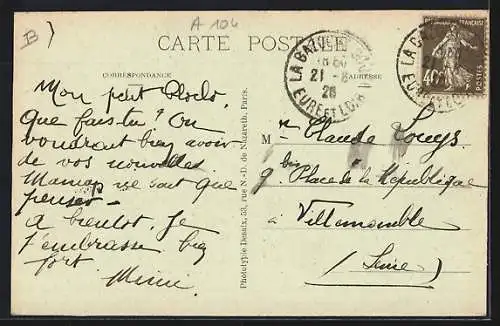 B)
A 106
CARTE POSTALE
CORRESPONDANCE
ADRESSE
LA BAZOCHE
21 - 8
26
EURE ET LOIR
RÉPUBLIQUE FRANÇAISE
40c
POSTES
Mon petit Cloclo,
Que fais-tu ? On
voudrait bien avoir
de vos nouvelles
Maman ne sait que
penser -
A bientôt. Je
t'embrasse bien
fort
Mimi
Phototypie Desaix, 53, rue N.-D. de Nazareth, Paris.
M Claude Louys
9 bis Place de la République
à Villemomble
(Seine)